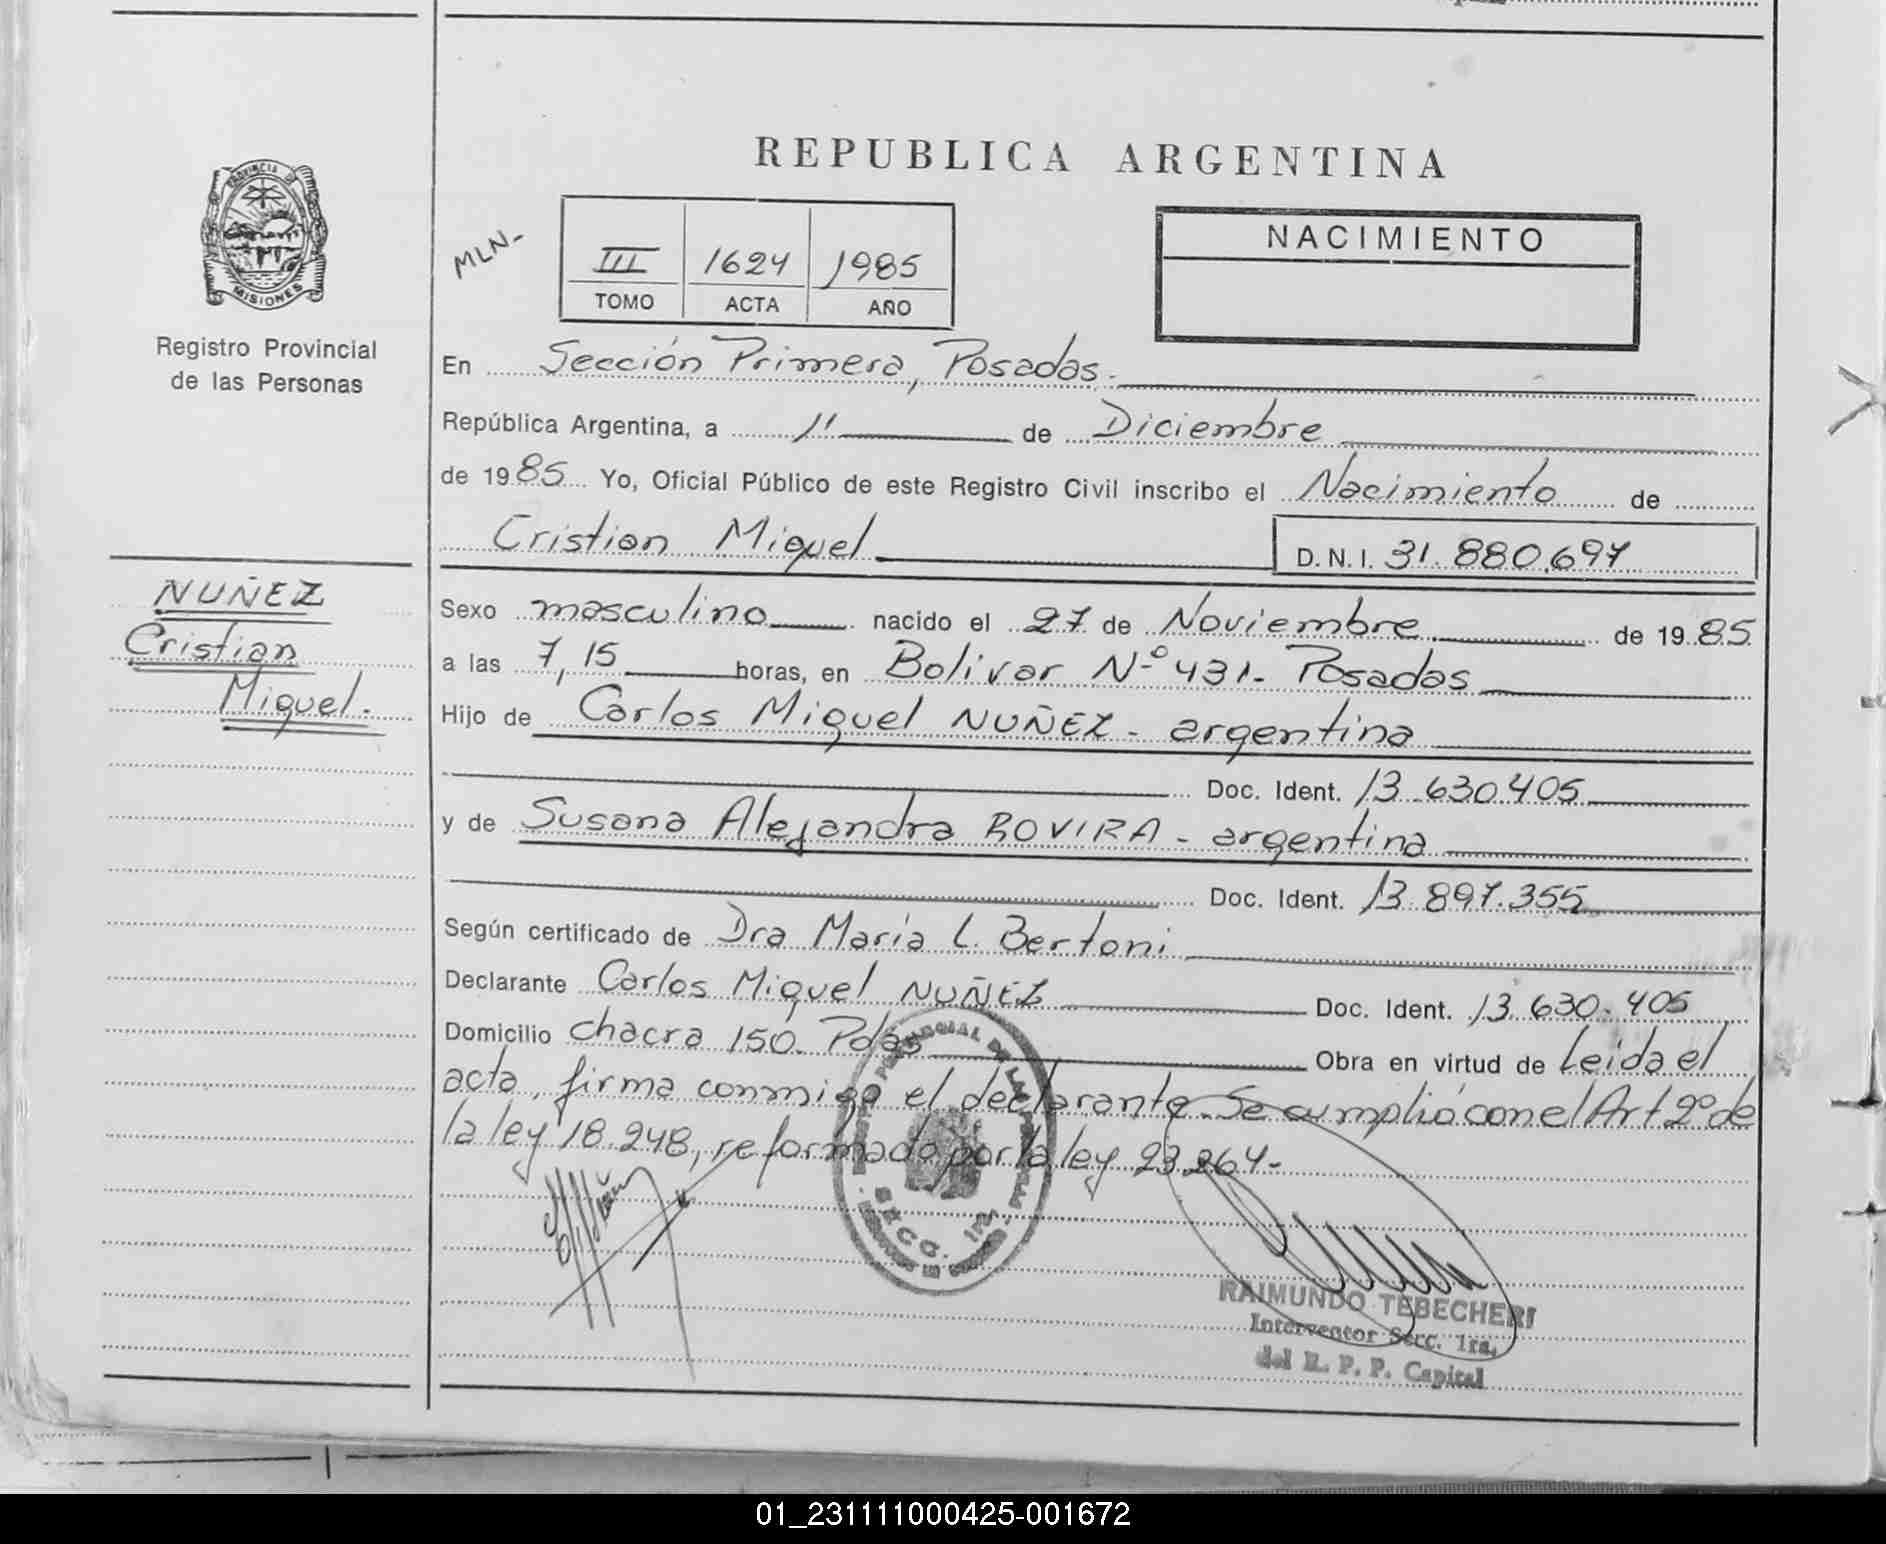 REPUBLICA ARGENTINA
PROVINCIA DE
MISIONES
Registro Provincial
de las Personas
MLN-
III 1624 1985
TOMO ACTA AÑO
NACIMIENTO
En Sección Primera, Posadas.
República Argentina, a 11 de Diciembre
de 1985 Yo, Oficial Público de este Registro Civil inscribo el Nacimiento de
Cristian Miguel D.N.I. 31.880.697
NUÑEZ
Cristian
Miguel.
Sexo masculino nacido el 27 de Noviembre de 1985
a las 7,15 horas, en Bolivar Nº 431- Posadas
Hijo de Carlos Miguel NUÑEZ - argentina
Doc. Ident. 13.630405
y de Susana Alejandra ROVIRA - argentina
Doc. Ident. 13.897.355
Según certificado de Dra María L. Bertoni
Declarante Carlos Miguel NUÑEZ Doc. Ident. 13.630.405
Domicilio chacra 150. Pdas Obra en virtud de Leida el
acta, firma conmigo el declarante. Se cumplió con el Art 2º de
la ley 18.248, reformado por la ley 23.264-
SECC. 1ra
RAIMUNDO TEBECHERI
Interventor Secc. 1ra.
del R. P. P. Capital
01_231111000425-001672